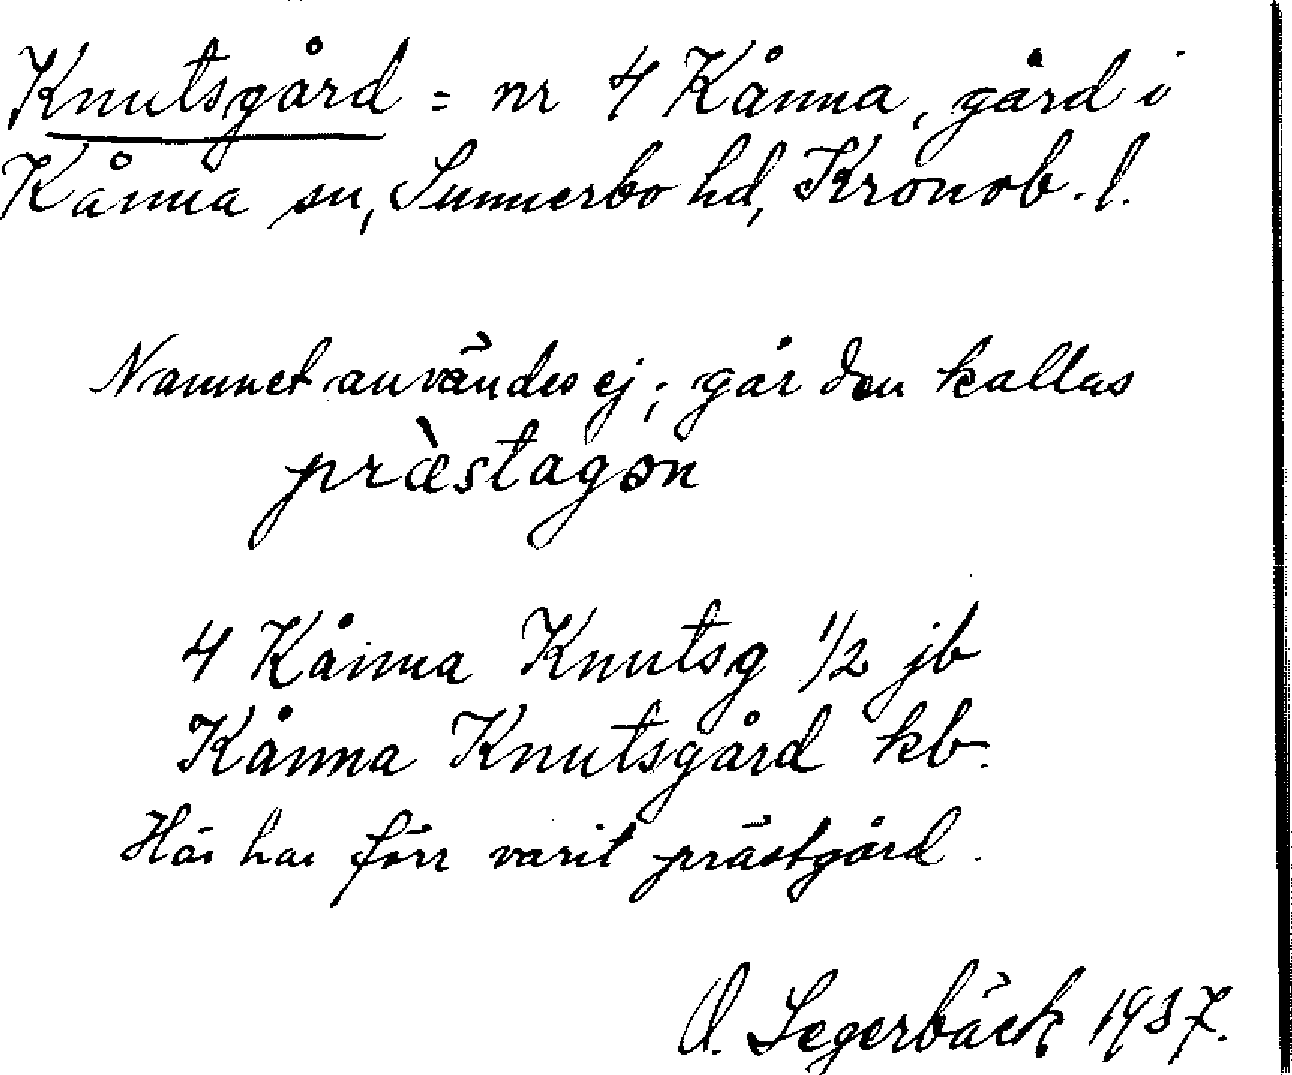 Knutsgård = nr 4 Kånna, gård i
Kånna sn, Sunnerbo hd, Kronob. l.
Namnet användes ej; går den kallas
præ̀stagøn
4 Kånna Knutsg 1/2 jb
Kånna Knutsgård kb.
Här har förr varit prästgård.
O. Segerbäck 1937.